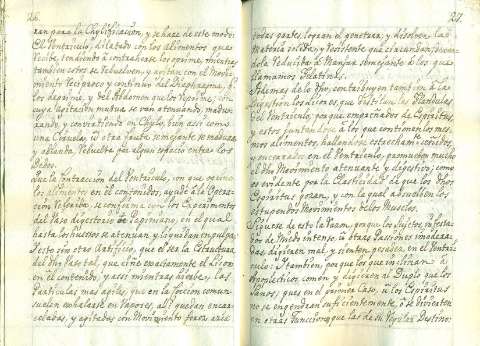 26.
ran para la Chylificacion, y se hace de este modo:
El Ventriculo, dilatado con los alimentos que
recibe, tendiendo à contraherse los oprime, mientras
tambien estos se rebuelven, y agitan con el Movi-
miento reciproco y continuo del Diaphragma, q.
los deprime, y del Abdomen que los reprime; con
cuya agitacion mutua se van atenuando, madu-
rando, y convirtiendo en Chylo, bien assi como
una Ciruela, ù otra fruta semejante se madura,
y ablanda, rebuelta por algun espacio entre los
Dedos.
Que la Contraccion del Ventriculo, con que oprime
los alimentos en èl contenidos, ayude à la Opera-
cion referida, se confirma con los Experimentos
del Vaso digestorio de Papiniano, en el qual
hasta los huessos se atenuan y liquidan en pulpa.
Y esto sin otro Artificio, que el ser la Estructura
del dho Vaso tal, que ciñe exactamente el ayre
en èl contenido, y assi mientras las
Particulas mas agiles, que en la coccion comun
suelen exhalarse en Vapores, alli quedan encar-
celadas, y agitadas con Movimiento forzado azia
27.
todas partes, logran el penetrar, y disolver la
Materia solida, y resistente que circundan, bolvien-
dola reducida à Manjar semejante à los que
llamamos Gelatinas.
Ademas de lo dho, contribuyen tambien à la
Digestion los licores, que destilan las Glandulas
del Ventriculo, porque impregnados de Espiritus,
y estos juntandose à los que contienen los mes-
mos alimentos, hallandose estrechamte. cocidos,
y encerrados en el Ventriculo, promueven mucho
el dho Movimiento atenuante y digestivo; como
es evidente por la Elasticidad de que los dhos
Espiritus gozan, y con la qual absuelben los
estupendos Movimientos de los Musculos.
Siguese de esto la razon, porque los sujetos infesta-
dos de Miedo intenso, ù otras Passiones immodera-
das digieren mal, y sienten pesadez en el Ventri-
culo: Y tambien, porque los que inclinan à
Apoplecticos comen, y digieren al Duplo que los
Sanos; pues en el primero Caso, ò los Espiritus
no se engendran suficientemente, ò se divierten
en otras Funciones, que las de su regular Destino: